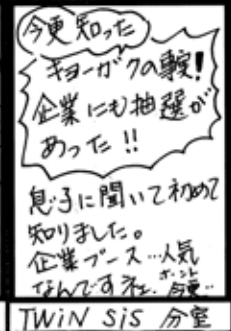 今更知った
キョーガクの事実!
企業にも抽選が
あった!!
息子に聞いて初めて
知りました。
企業ブース…人気
なんですネェ. ホント今更..
TWiN SiS 分室